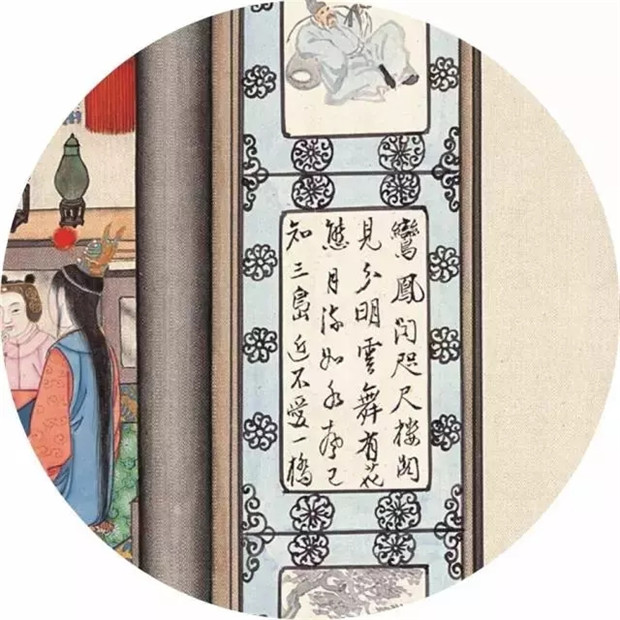 鸞鳳聞咫尺樓閣
見分明雲舞有花
態月流如水聲已
知三島近不愛一橋